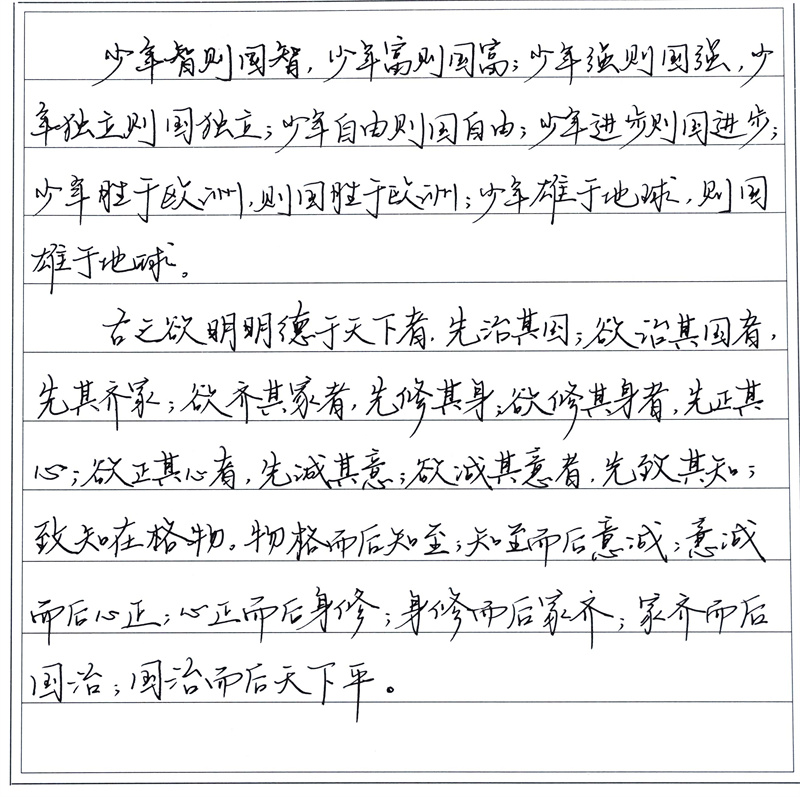 少年智则国智，少年富则国富；少年强则国强，少
年独立则国独立；少年自由则国自由；少年进步则国进步；
少年胜于欧洲，则国胜于欧洲；少年雄于地球，则国
雄于地球。
古之欲明明德于天下者，先治其国；欲治其国者，
先其齐家；欲齐其家者，先修其身；欲修其身者，先正其
心；欲正其心者，先诚其意；欲诚其意者，先致其知；
致知在格物。物格而后知至；知至而后意诚；意诚
而后心正；心正而后身修；身修而后家齐；家齐而后
国治；国治而后天下平。